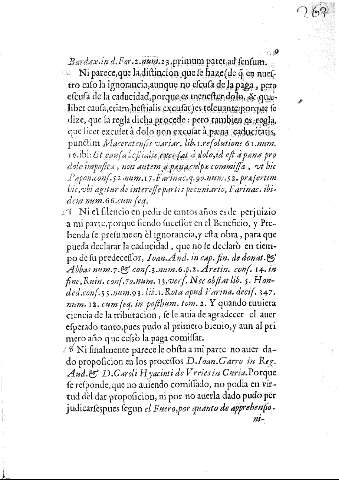 269
9
Bardax. in d. Far. 2. num. 23. primum patet ad sensum.
Ni parece, que la distincion que se haze (de q̃ en nues-
tro caso la ignorancia, aunque no escusa de la paga, pero
escusa de la caducidad, porque es menester dolo, & quæ-
libet causa, etiam bestialis excusat) es releuante, porque se
dize, que la regla dicha procede: pero tambien es regla,
que licet excuset à dolo non excusat à pœna caducitatis,
punctim Maceratensis variar. lib. 1. resolutione 61. num.
19. ibi: Et causa bestialis excusat à dolo, id est à pœna pro
dolo imposita, non autem à pœna culpæ commissa, ut hic
num. 52. præsertim
hic, ubi agitur de interesse partis pecuniario, Farinac. ibi-
dem num. 66. cum seq.
Ni el silencio en pedir de tantos años es de perjuizio
à mi parte, porque siendo sucessor en el Beneficio, y Pre-
benda se presume en èl ignorancia, y esta obra, para que
pueda declarar la caducidad, que no se declarò en tiem-
po de su predecessor, Ioan. And. in cap. fin. de donat. &
Abbas num. 7. & conf. 3. num. 6. p. 2. Aretin. conf. 14. in
fine, Ruin. conf. 70. num. 13. vers. Nec obstat lib. 5. Hon-
ded. conf. 55. num. 93. lib. 1. Rota apud Farina. decis. 347.
num. 12. cum seq. in posthum. tom. 2. Y quando tuuiera
ciencia de la tributacion, se le auia de agradecer el auer
esperado tanto, pues pudo al primero bienio, y aun al pri-
mero año que cessò la paga comissar.
Ni finalmente parece le obsta à mi parte no auer da-
do proposicion en los processos D. Ioan. Garro in Reg.
Aud. & D. Caroli Hyacinti de Vreies in Curia. Porque
se responde, que no auiendo comissado, no podia en vir-
tud del dar proposicion, ni por no auerla dado pudo per
judicarse; pues segun el Fuero, por quanto de apprehensio-
ni-